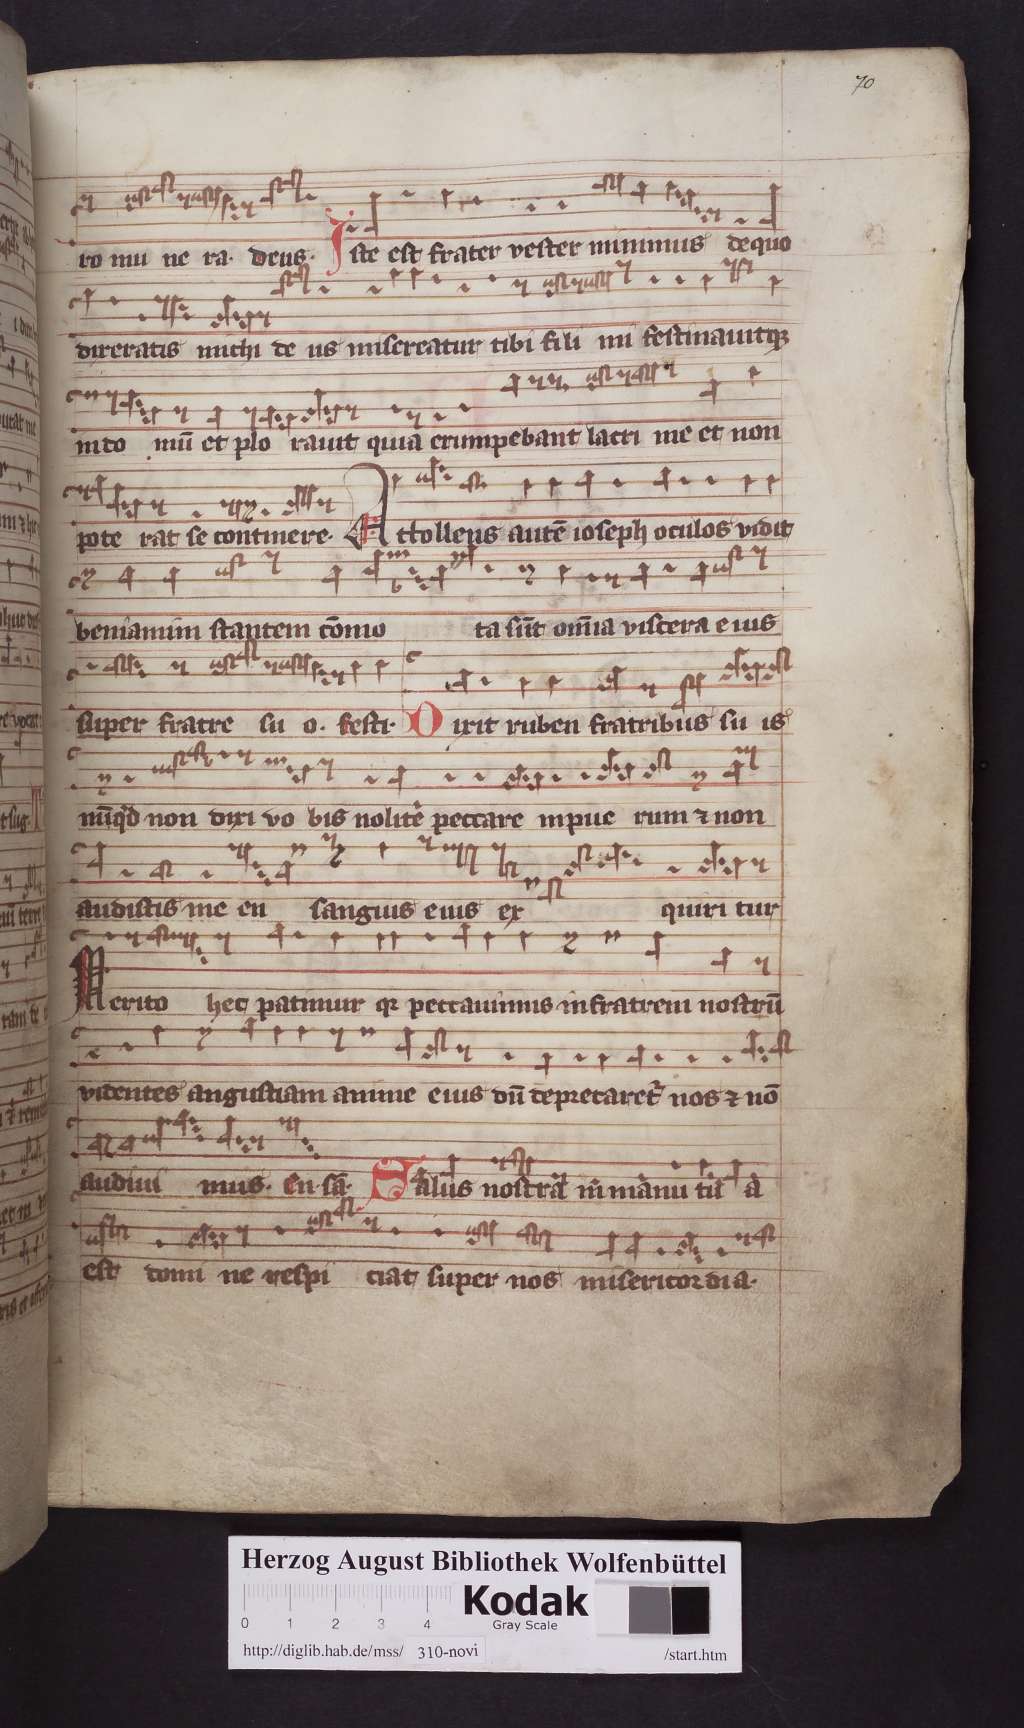 70
ro mu ne ra. deus. Iste est frater vester minimus de quo
dixeratis michi de us misereatur tibi fili mi festinauitqꝫ
in do mū et plo rauit quia erumpebant lacri me et non
pote rat se continere. Attollens autē ioseph oculos vidit
beniamin stantem cōmo ta sūt om̄ia viscera eius
super fratre su o. festi. Dixit ruben fratribus su is
nūqͥd non dixi vo bis nolite peccare in pue rum ⁊ non
audistis me en sanguis eius ex quiri tur
Merito hec patimur qꝛ peccauimus in fratrem nostrū
videntes angustiam anime eius dū deprecaret᷑ nos ⁊ nō
audiui mus. En. sā. Salus nostra in manu tu a
est domi ne respi ciat super nos misericordia.
Herzog August Bibliothek Wolfenbüttel
Kodak
Gray Scale
0 1 2 3 4
http://diglib.hab.de/mss/ 310-novi /start.htm